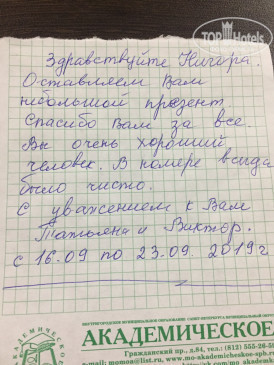 TopHotels
Здравствуйте Нигора.
Оставляем Вам
небольшой презент
Спасибо Вам за все.
Вы очень хороший
человек. В номере всегда
было чисто.
С уважением к Вам
Татьяна и Виктор.
с 16.09 по 23.09. 2019 г
ВНУТРИГОРОДСКОЕ МУНИЦИПАЛЬНОЕ ОБРАЗОВАНИЕ САНКТ-ПЕТЕРБУРГА МУНИЦИПАЛЬНЫЙ
АКАДЕМИЧЕСКОЕ
Гражданский пр., д.84, тел.: (812) 555-26
e-mail: momoa@list.ru, www.mo-akademicheskoe-spb.r
АКАДЕМИЧЕСКОЕ